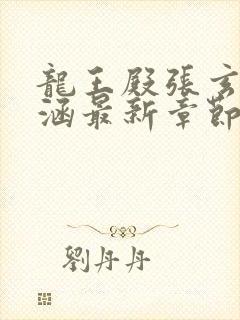 龍王殿張玄
涵最新章節
劉丹丹